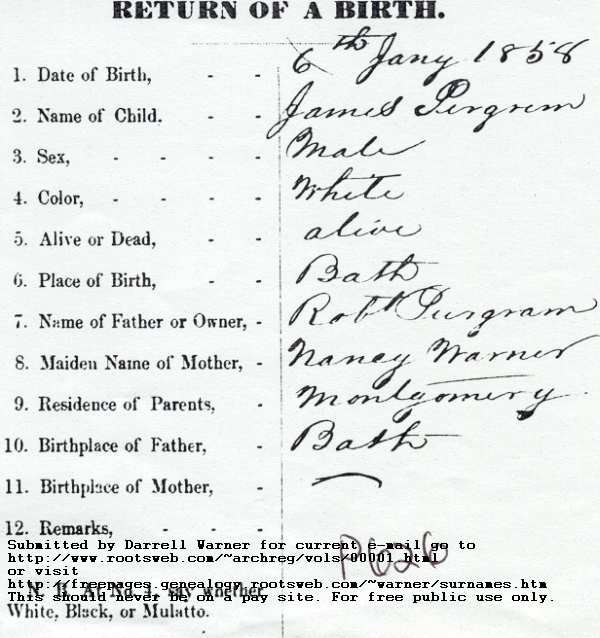 RETURN OF A BIRTH.
1. Date of Birth, - - 6th Jany 1858
2. Name of Child. - - James Pergrem
3. Sex, - - - - Male
4. Color, - - - - White
5. Alive or Dead, - - alive
6. Place of Birth, - - Bath
7. Name of Father or Owner, - Robt Purgram
8. Maiden Name of Mother, - Nancy Warner
9. Residence of Parents, - Montgomery
10. Birthplace of Father, - Bath
11. Birthplace of Mother, -
12. Remarks, - - -
P626
Submitted by Darrell Warner for current e-mail go to
http://www.rootsweb.com/~archreg/vols/00001.html
or visit
http://freepages.genealogy.rootsweb.com/~warner/surnames.htm
N. B. At No. 4, say whether
This should never be on a pay site. For free public use only.
White, Black, or Mulatto.